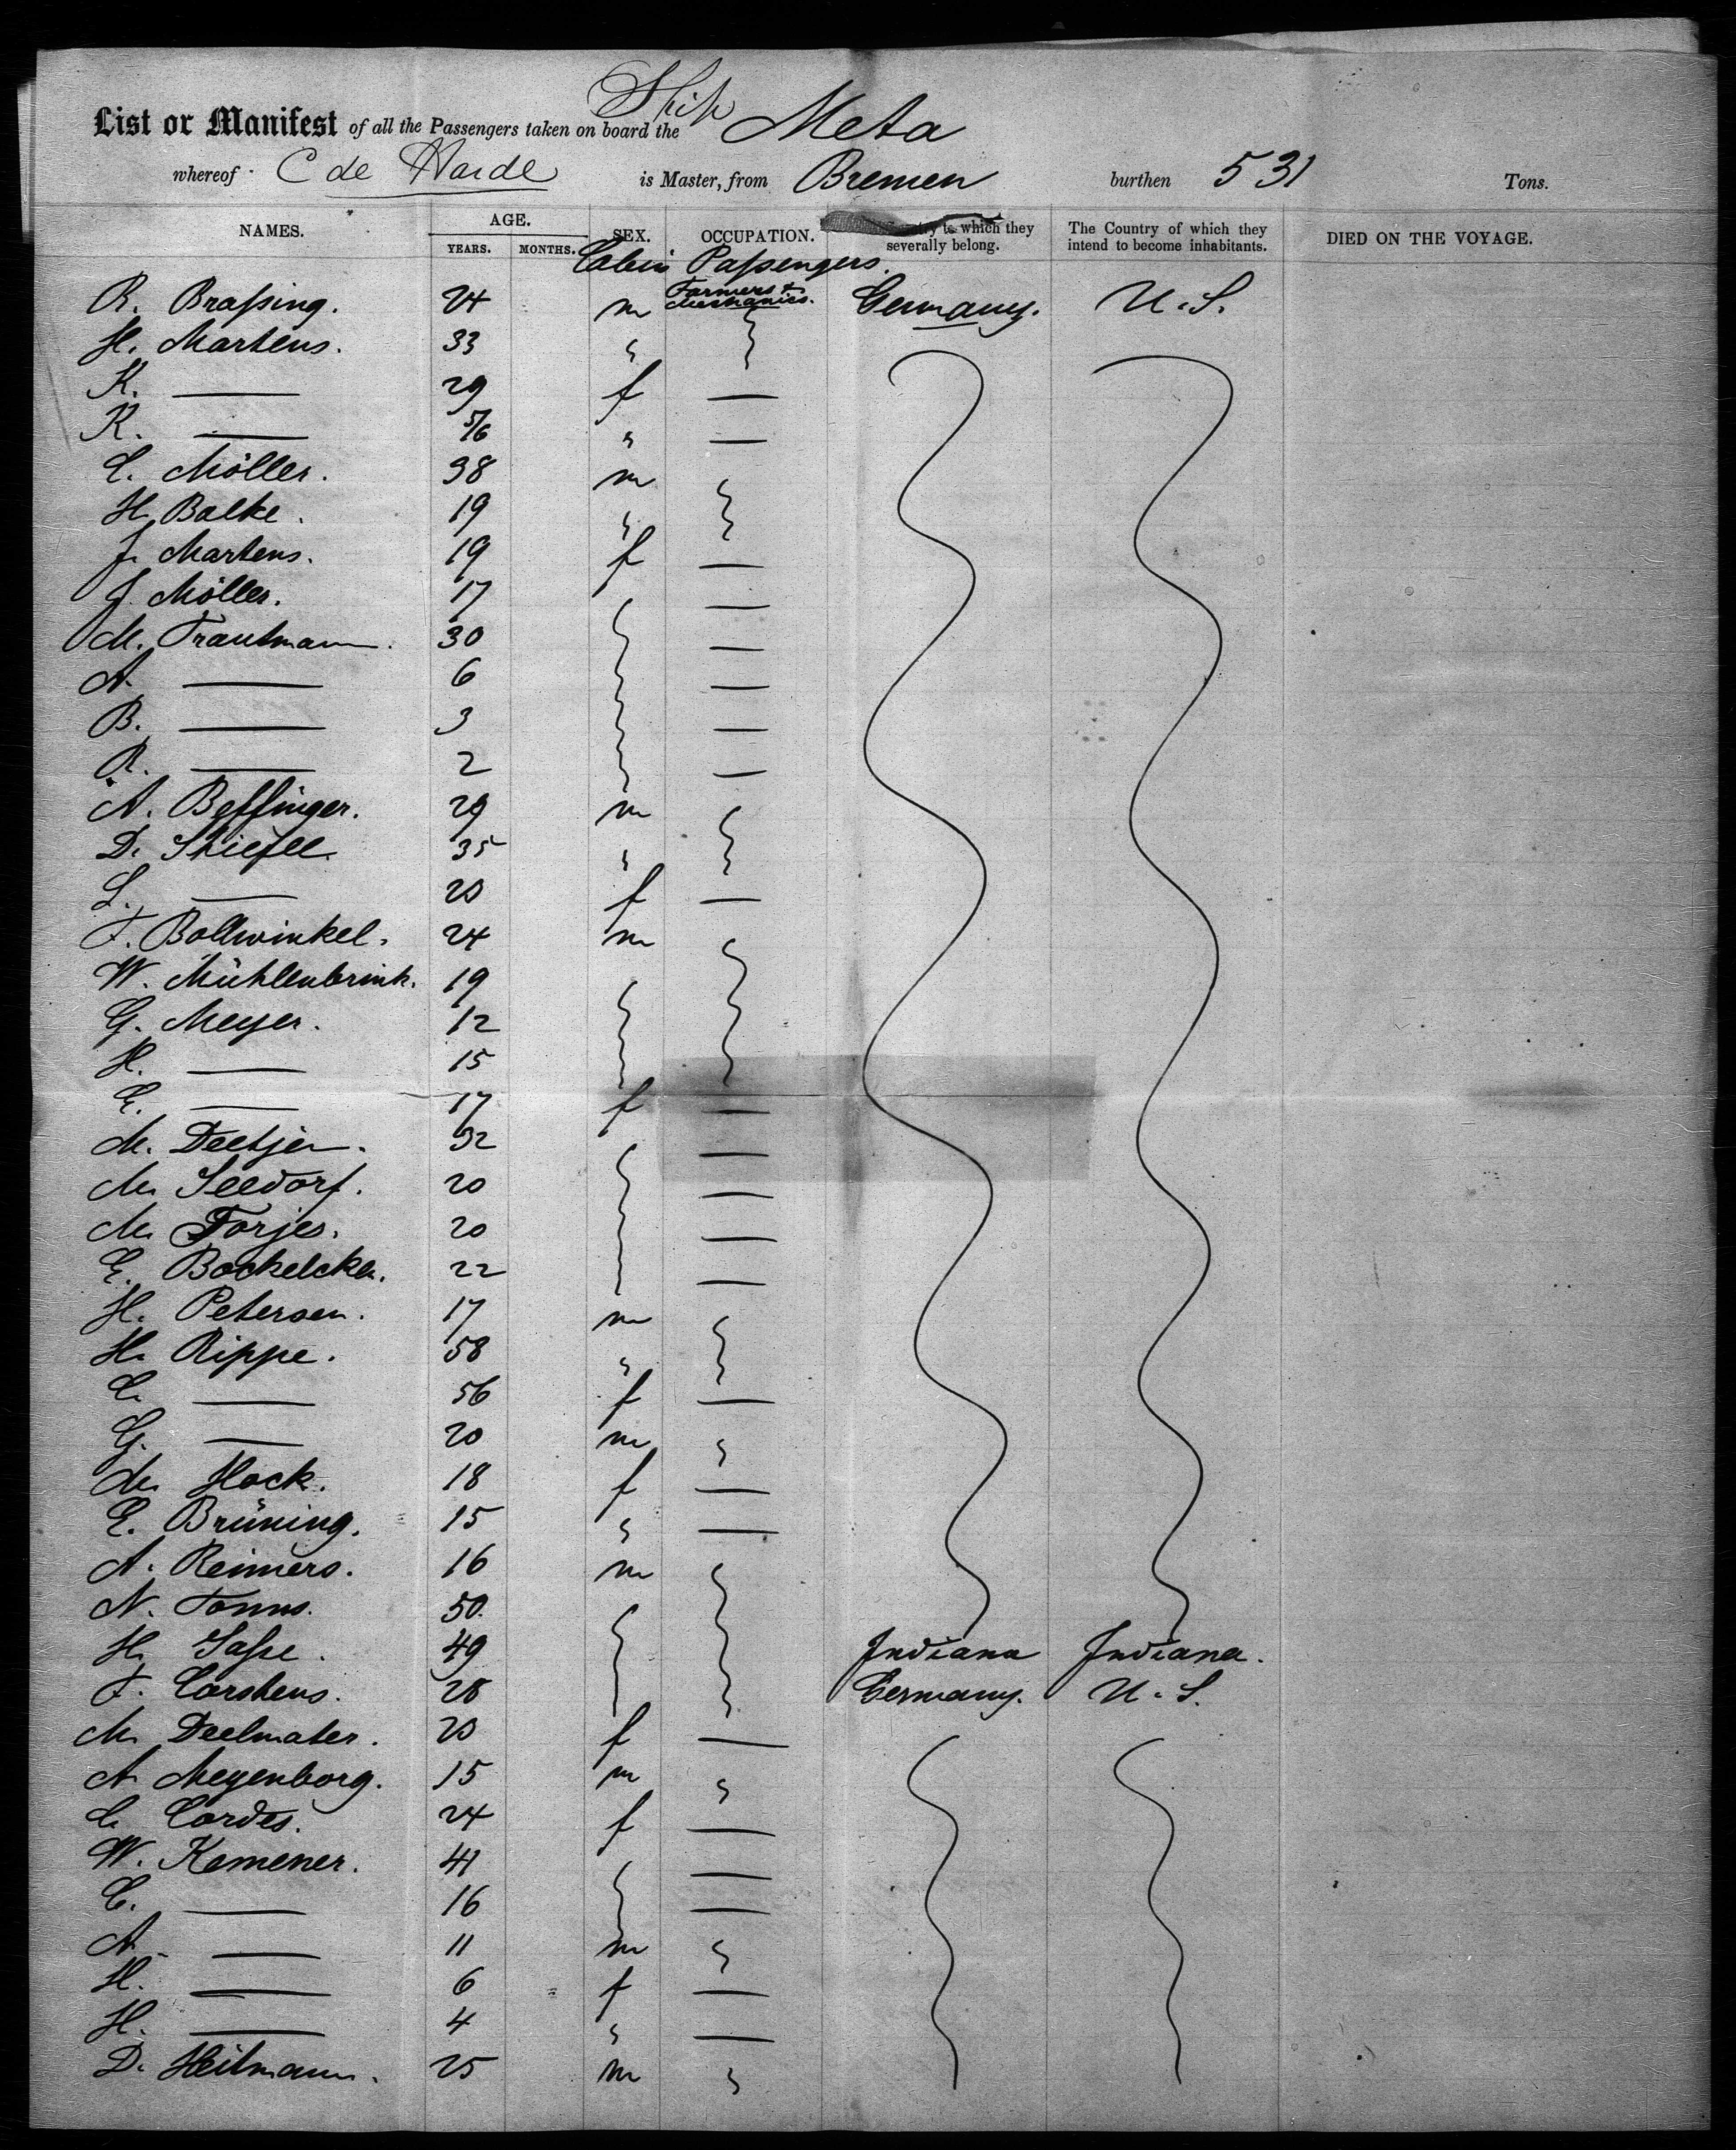 List or Manifest of all the Passengers taken on board the Ship Meta
whereof C de Harde is Master, from Bremen burthen 531 Tons.
NAMES. AGE. YEARS. MONTHS. SEX. OCCUPATION. to which they severally belong. The Country of which they intend to become inhabitants. DIED ON THE VOYAGE.
Cabin Passengers.
R. Brassing. 24 m Farmers & Mechanics. Germany. U.S.
H. Martens. 33 "
K. — 29 f —
K. — " —
C. Möller. 38 m
H. Balke. 19 "
J. Martens. 19 f —
J. Möller. 17 —
M. Trautmann. 30 —
A. — 6 —
B. — 3 —
R. — 2 —
A. Beffinger. 29 m
D. 35 "
L. — f —
F. Bollwinkel. 24 m
W. Mühlenbrink. 19
G. Meyer. 12
H. — 15
E. — 17 f —
M. Deetjen. 32 —
M. Seedorf. 20 —
M. Torjes. 20 —
E. 22 —
H. Petersen. 17 m
H. Rippe. 58 "
C. — 56 f —
G. — 20 m "
M. Hock. 18 f —
E. Brüning. 15 " —
A. Reimers. 16 m
N. Tonns. 50.
H. Sasse. 49 Indiana Indiana.
F. Carstens. 28 Germany. U.S.
M. Deelmater. f —
A. Meyenborg. 15 m "
C. Cordes. 24 f —
W. Kemener. 41 —
C. — 16 —
A. — 11 m
H. — 6 f —
H. — 4 " —
D. Heitmann. 25 m "